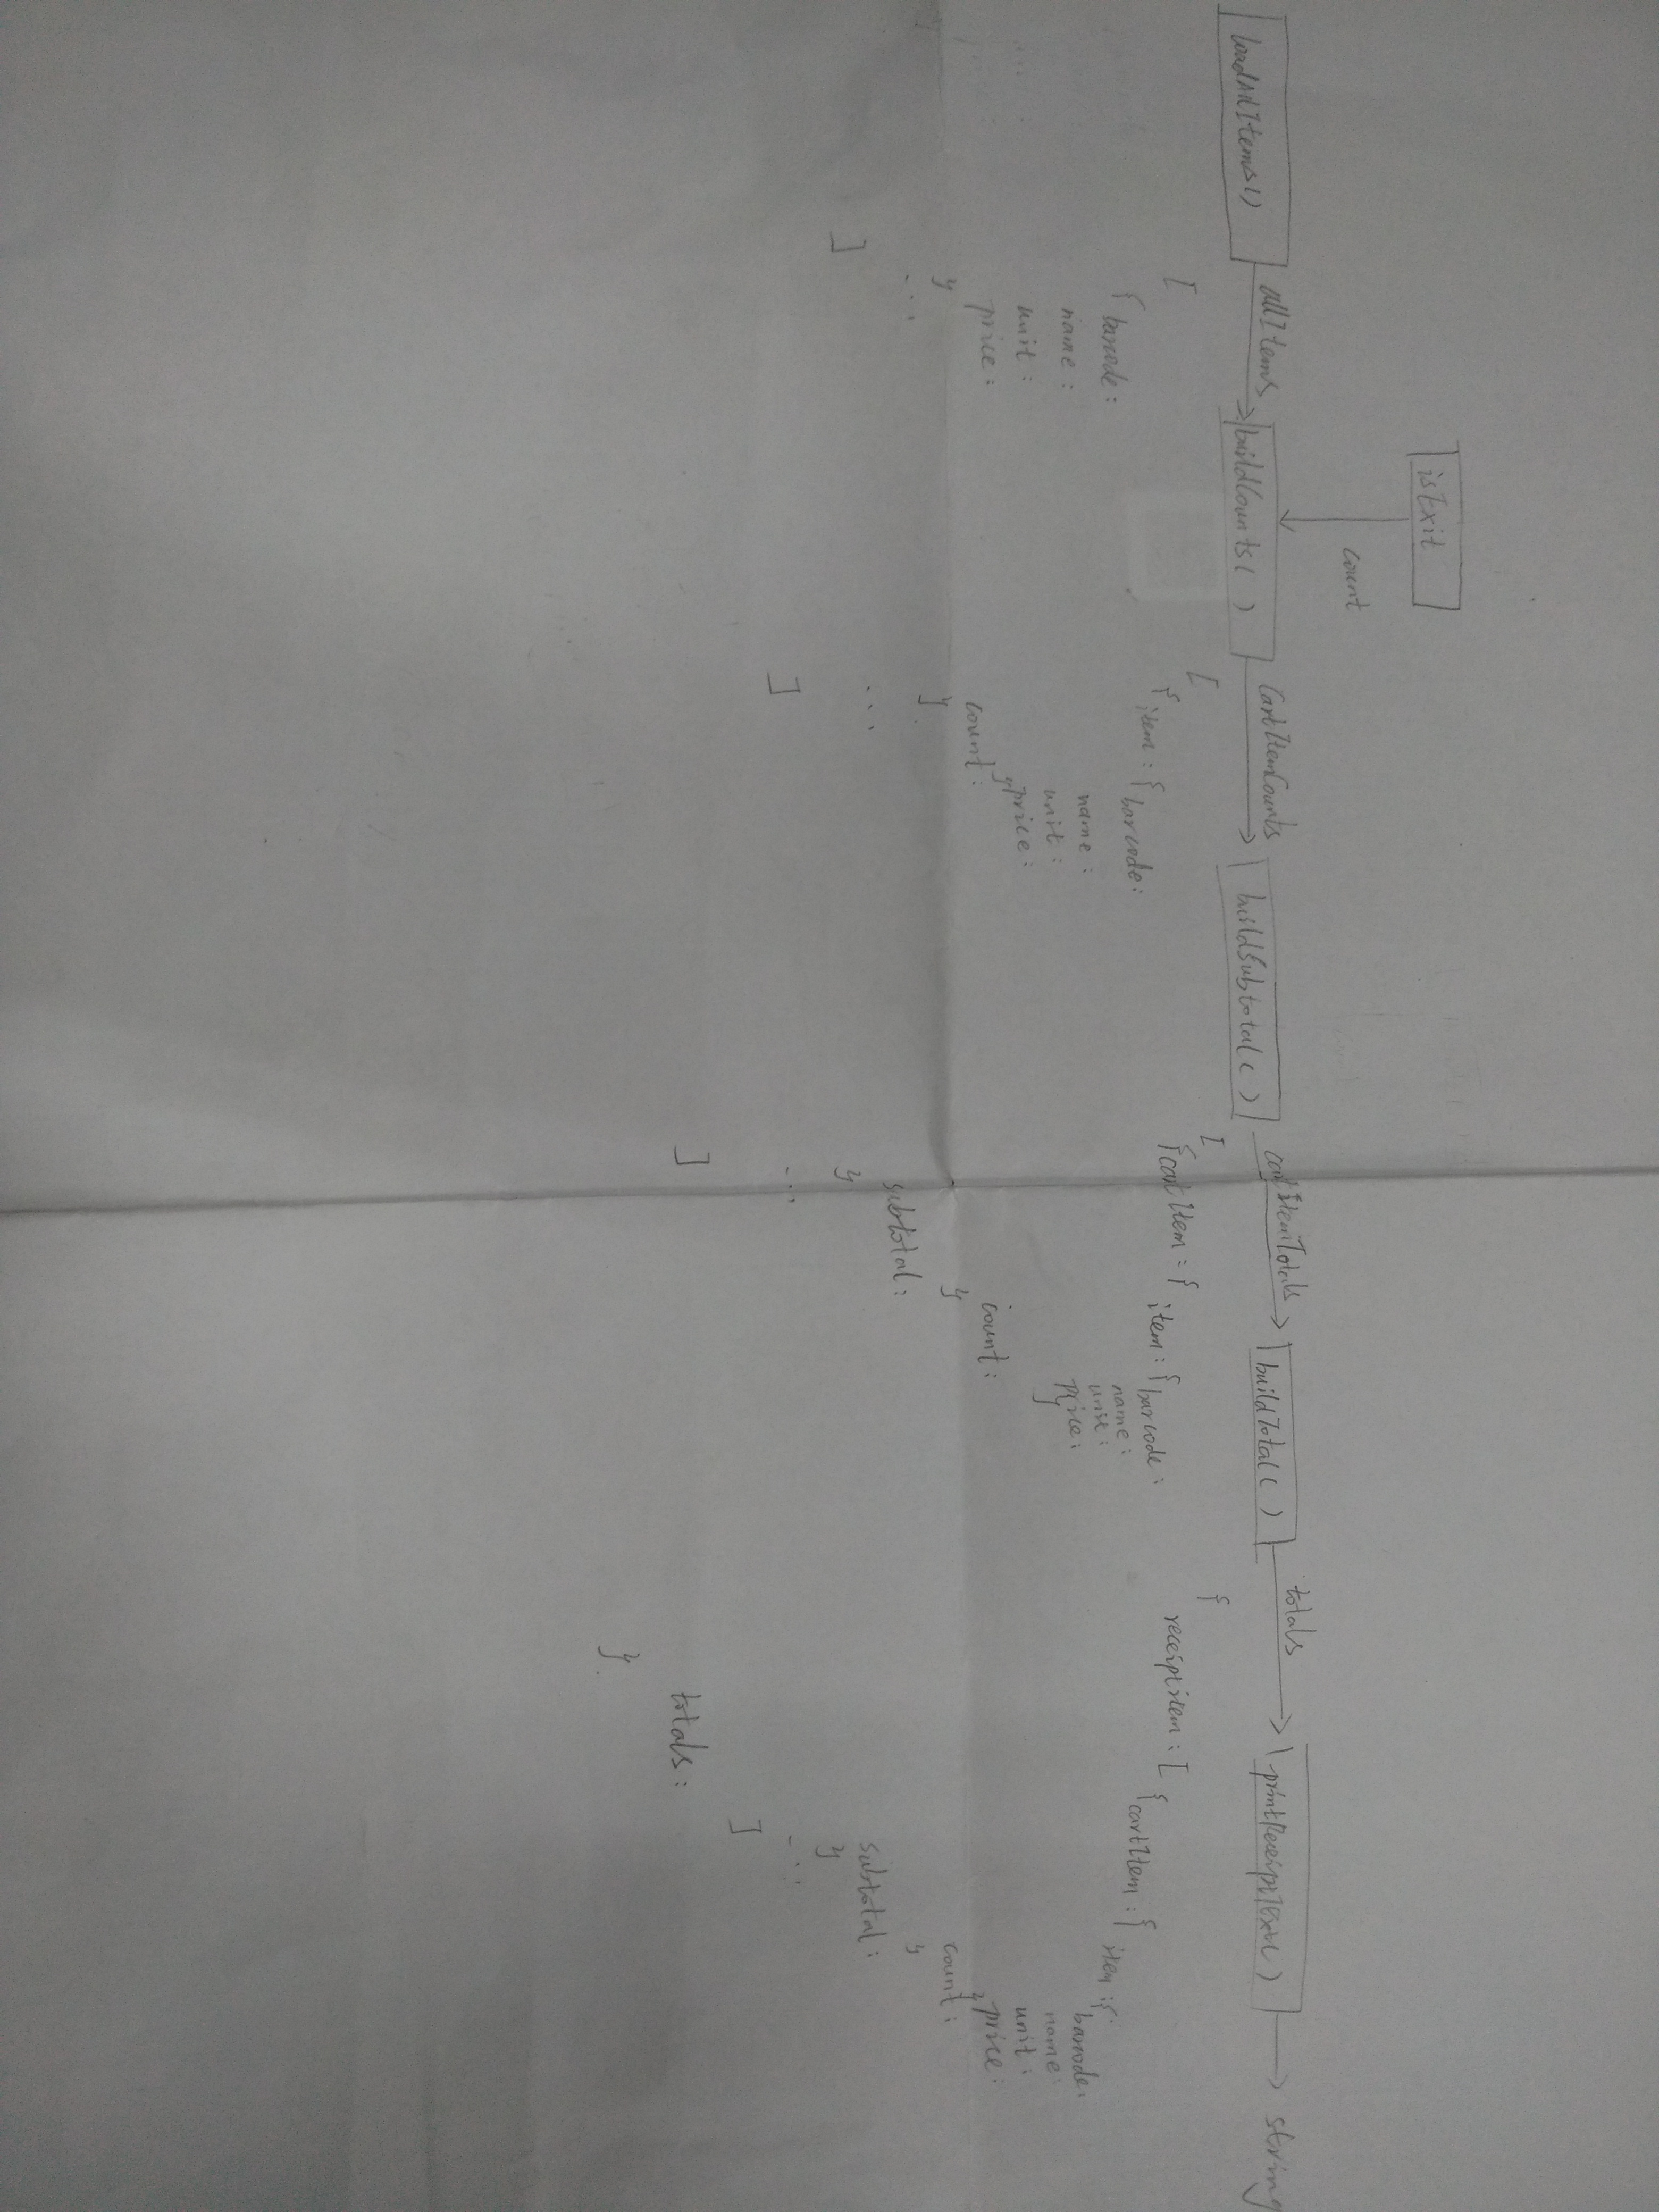 isExit
count
loadAllItems()
allItems
buildCounts( )
CartItemCounts
buildSubtotal( )
cartItemTotals
buildTotal( )
totals
printReceiptText( )
string
[
{ barcode :
name :
unit :
price :
}
...
]
[
{ item : { barcode :
name :
unit :
price :
}
count :
}
...
]
[
{ cartItem : { item : { barcode :
name :
unit :
price :
}
count :
}
subtotal :
}
...
]
{
receiptitem : [ { cartItem : { item : {
barcode :
name :
unit :
price :
}
count :
}
subtotal :
}
...
]
totals :
}